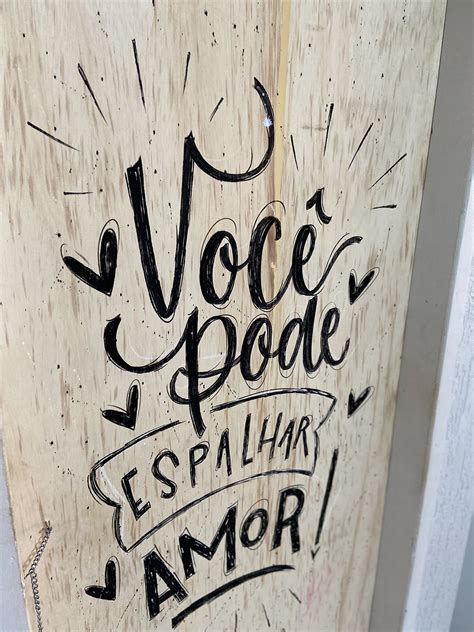 Você
pode
ESPALHAR
AMOR!